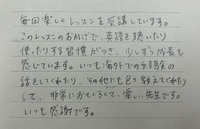 毎回楽しくレッスンを受講しています。
このレッスンのおかげで、英語を聴いたり
使ったりする習慣がつき、少しずつ成長も
感じています。いつも海外での生活の
話をしてくれたり、その他にも色々教えてくれたり
して、非常におもしろくて、楽しい先生です。
いつも感謝です。